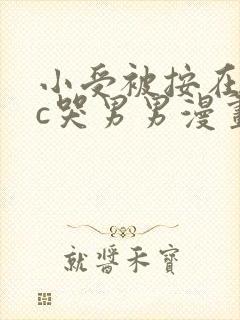 小受被按在
c哭男男漫畫
就醬禾寶